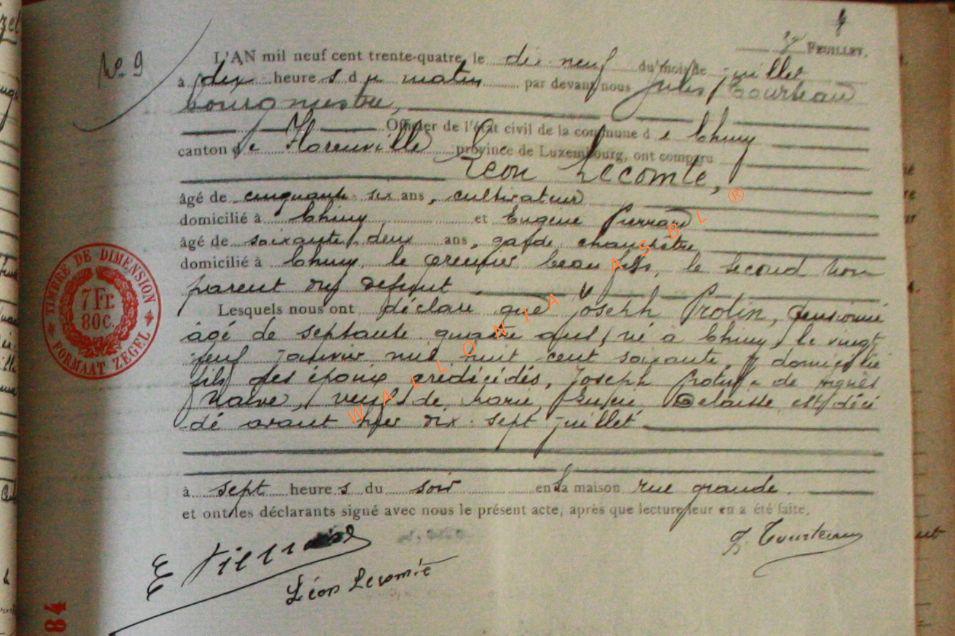 No 9
FEUILLET.
L'AN mil neuf cent trente-quatre, le dix neuf du mois de juillet
à dix heures du matin par devant nous Jules Tourteau
bourgmestre,
Officier de l'état civil de la commune de Chiny
canton de Florenville province de Luxembourg, ont comparu
Léon Lecomte,
âgé de cinquante six ans, cultivateur
domicilié à Chiny et Eugène Pierrard
âgé de soixante deux ans, garde champêtre
domicilié à Chiny le premier beau fils, le second non
parent du défunt
Lesquels nous ont déclaré que Joseph Protin, pensionné
âgé de septante quatre ans, né à Chiny le vingt
neuf janvier mil huit cent soixante y domicilié
fils des époux prédécédés, Joseph Protin de Agnès
veuf de Marie est décé
dé avant hier dix-sept juillet
à sept heures du soir en sa maison rue grande.
et ont les déclarants signé avec nous le présent acte, après que lecture leur en a été faite.
J. Tourteau
E Pierrard
Léon Lecomte
TIMBRE DE DIMENSION
7 Fr.
80 c.
FORMAAT ZEGEL
WALLONIA ASBL ®
84